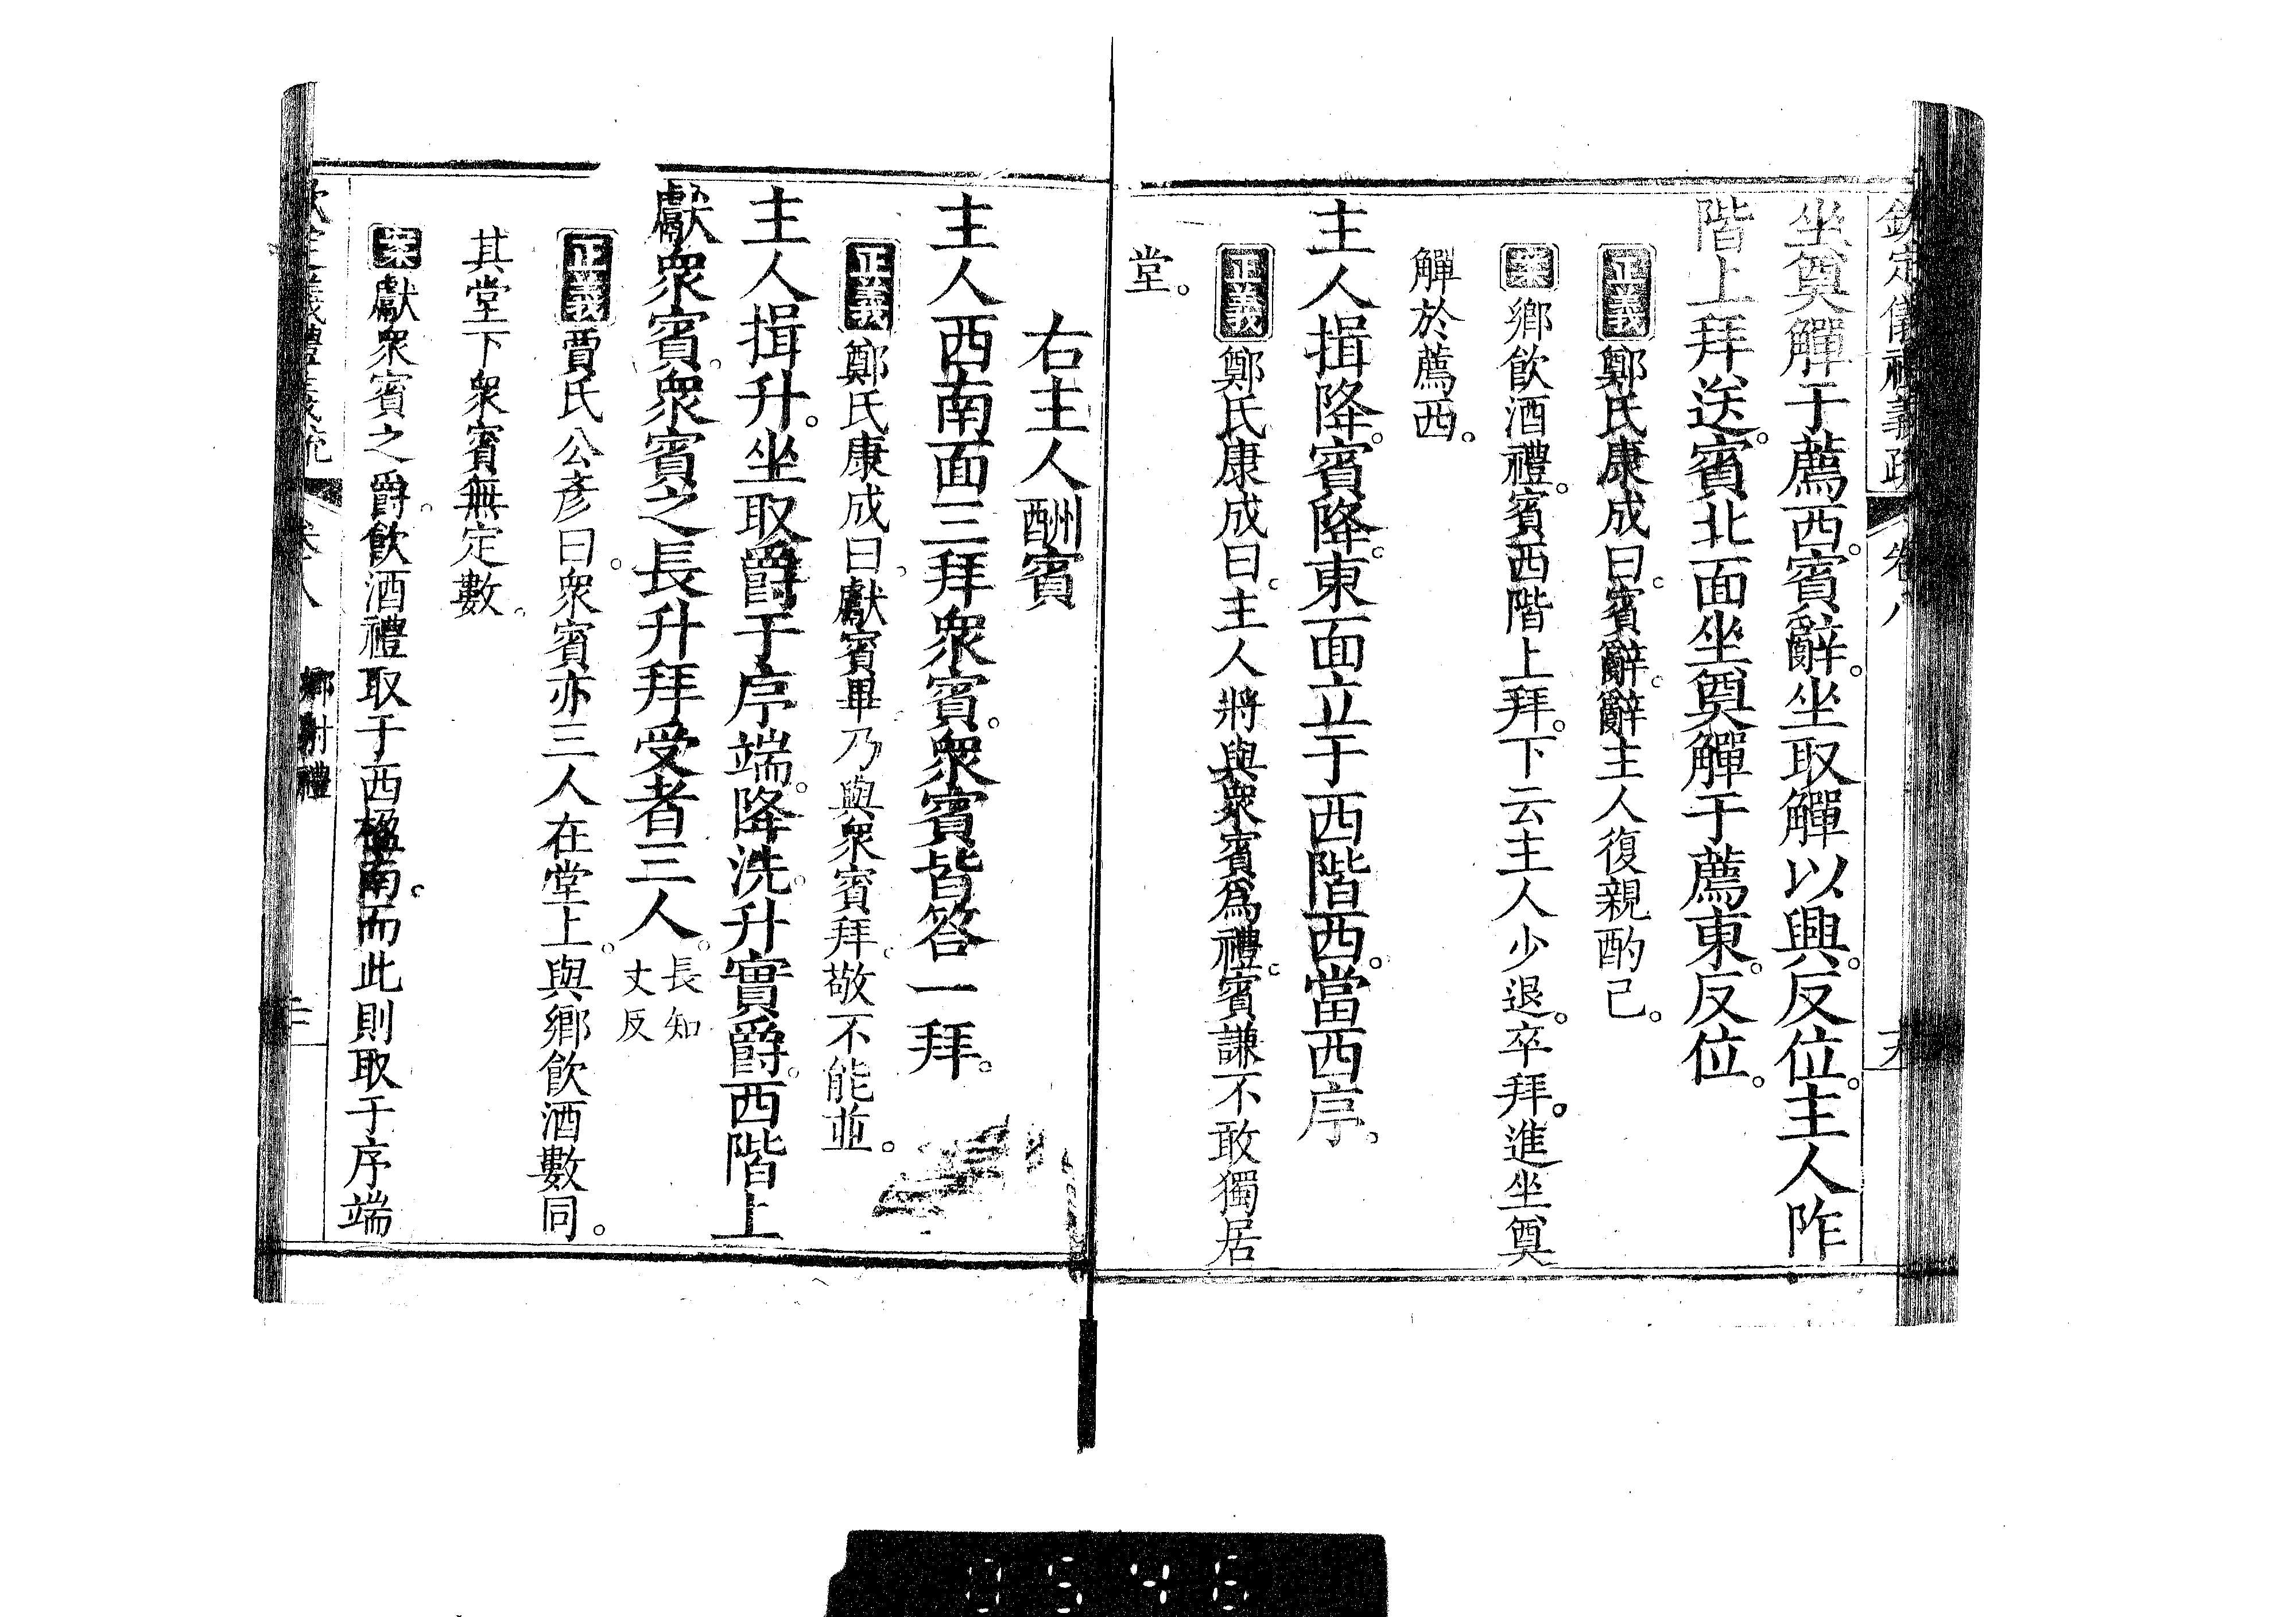 欽定儀禮義疏 卷八
坐奠觶于薦西。賓辭。坐取觶以興。反位。主人阼
階上拜送。賓北面坐奠觶于薦東。反位。
正義鄭氏康成曰。賓辭。辭主人復親酌己。
案鄉飲酒禮。賓西階上拜。下云主人少退。卒拜。進坐奠
觶於薦西。
主人揖降。賓降。東面立于西階西。當西序。
正義鄭氏康成曰。主人將與衆賓爲禮。賓謙不敢獨居
堂。
右主人酬賓
主人西南面三拜衆賓。衆賓皆答一拜。
正義鄭氏康成曰。獻賓畢。乃與衆賓拜。敬不能並。
主人揖升。坐取爵于序端。降洗。升實爵。西階上
獻衆賓。衆賓之長升拜受者三人。長知丈反
正義賈氏公彥曰。衆賓亦三人在堂上。與鄉飲酒數同。
其堂下衆賓無定數。
案獻衆賓之爵。飲酒禮取于西楹南。而此則取于序端
欽定儀禮義疏 卷八 鄉射禮
0546